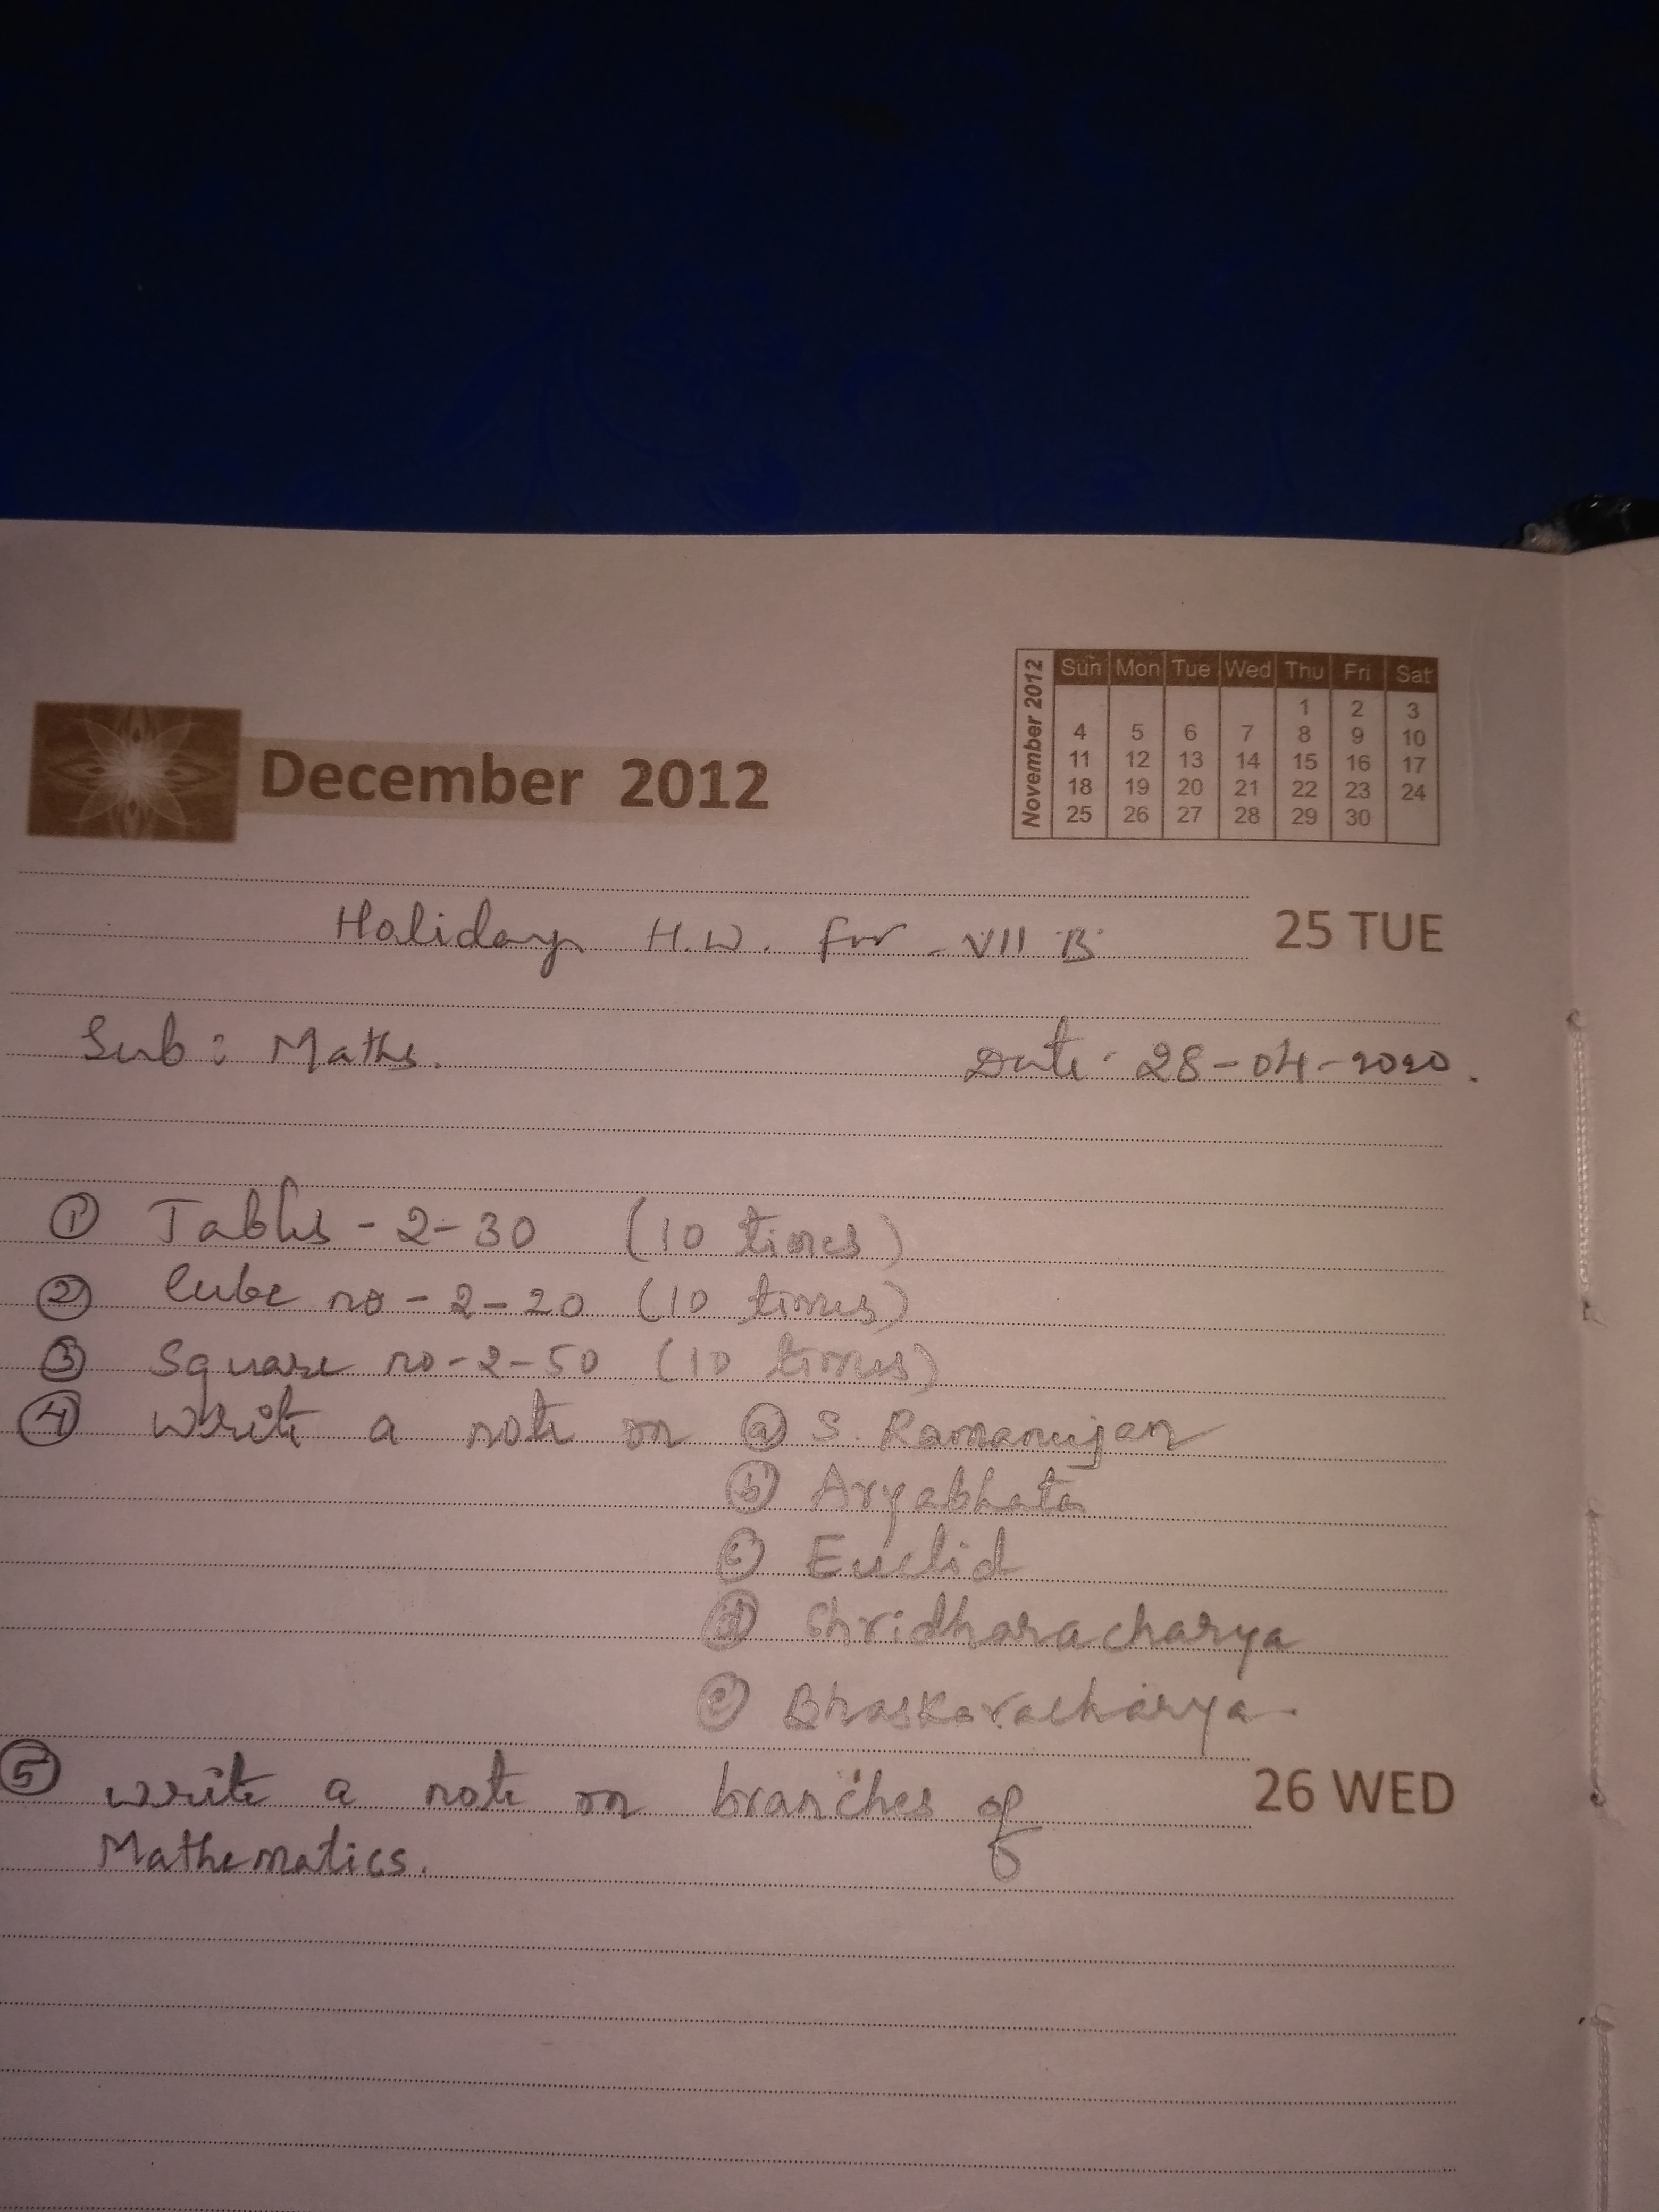 December 2012
November 2012
Sun Mon Tue Wed Thu Fri Sat
1 2 3
4 5 6 7 8 9 10
11 12 13 14 15 16 17
18 19 20 21 22 23 24
25 26 27 28 29 30
Holiday H.W. for - VII B
25 TUE
Sub: Maths.
Date: 28-04-2020.
① Tables - 2-30 (10 times)
② Cube no - 2-20 (10 times)
③ Square no-2-50 (10 times)
④ Write a note on ⓐ S. Ramanujan
ⓑ Aryabhata
ⓒ Euclid
ⓓ Shridharacharya
ⓔ Bhaskaracharya.
⑤ write a note on branches of
26 WED
Mathematics.